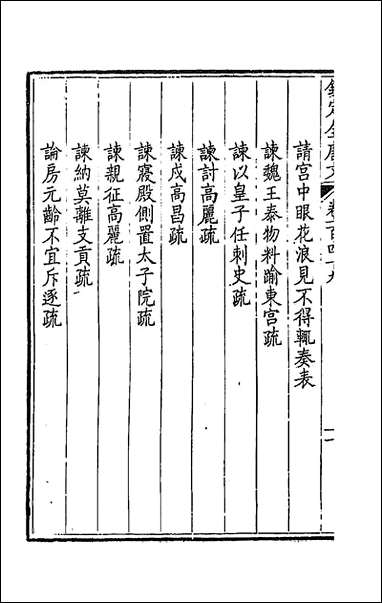 欽定全唐文 卷一百四十九
請宮中眼花浪見不得輒奏表
諫魏王泰物料踰東宮疏
諫以皇子任刺史疏
諫討高麗疏
諫戍高昌疏
諫寢殿側置太子院疏
諫親征高麗疏
諫納莫離支貢疏
論房元齡不宜斥逐疏